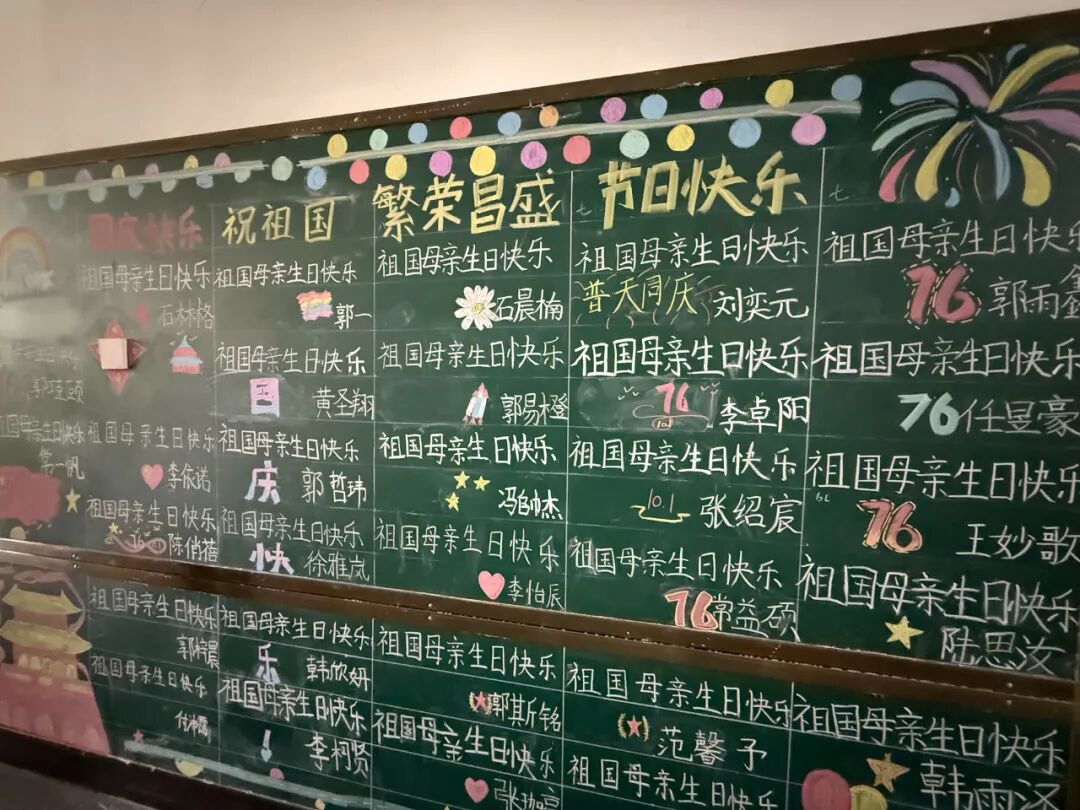 国庆快乐
祝祖国
繁荣昌盛
节日快乐
祖国母亲生日快乐
郭
祖国母亲生日快乐
常一帆
祖国母亲生日快乐
石林格
祖国母亲生日快乐
李依诺
祖国母亲生日快乐
陈俏蓓
祖国母亲生日快乐
祖国母亲生日快乐
祖国母亲生日快乐
郭一
祖国母亲生日快乐
国
黄圣翔
祖国母亲生日快乐
庆
郭哲玮
祖国母亲生日快乐
快
徐雅岚
祖国母亲生日快乐
乐
韩欣妍
祖国母亲生日快乐
!
李柯贤
祖国母亲生日快乐
石晨楠
祖国母亲生日快乐
郭易橙
祖国母亲生日快乐
冯帅杰
祖国母亲生日快乐
李怡辰
祖国母亲生日快乐
郭斯铭
祖国母亲生日快乐
七
祖国母亲生日快乐
普天同庆
刘奕元
祖国母亲生日快乐
76
李卓阳
祖国母亲生日快乐
10.1
张绍宸
祖国母亲生日快乐
76
常益硕
祖国母亲生日快乐
范馨予
祖国母亲生日快乐
七
祖国母亲生日快乐
76
郭雨鑫
祖国母亲生日快乐
76
任昱豪
祖国母亲生日快乐
76
王妙歌
祖国母亲生日快乐
陆思汝
祖国母亲生日快乐
韩雨泽